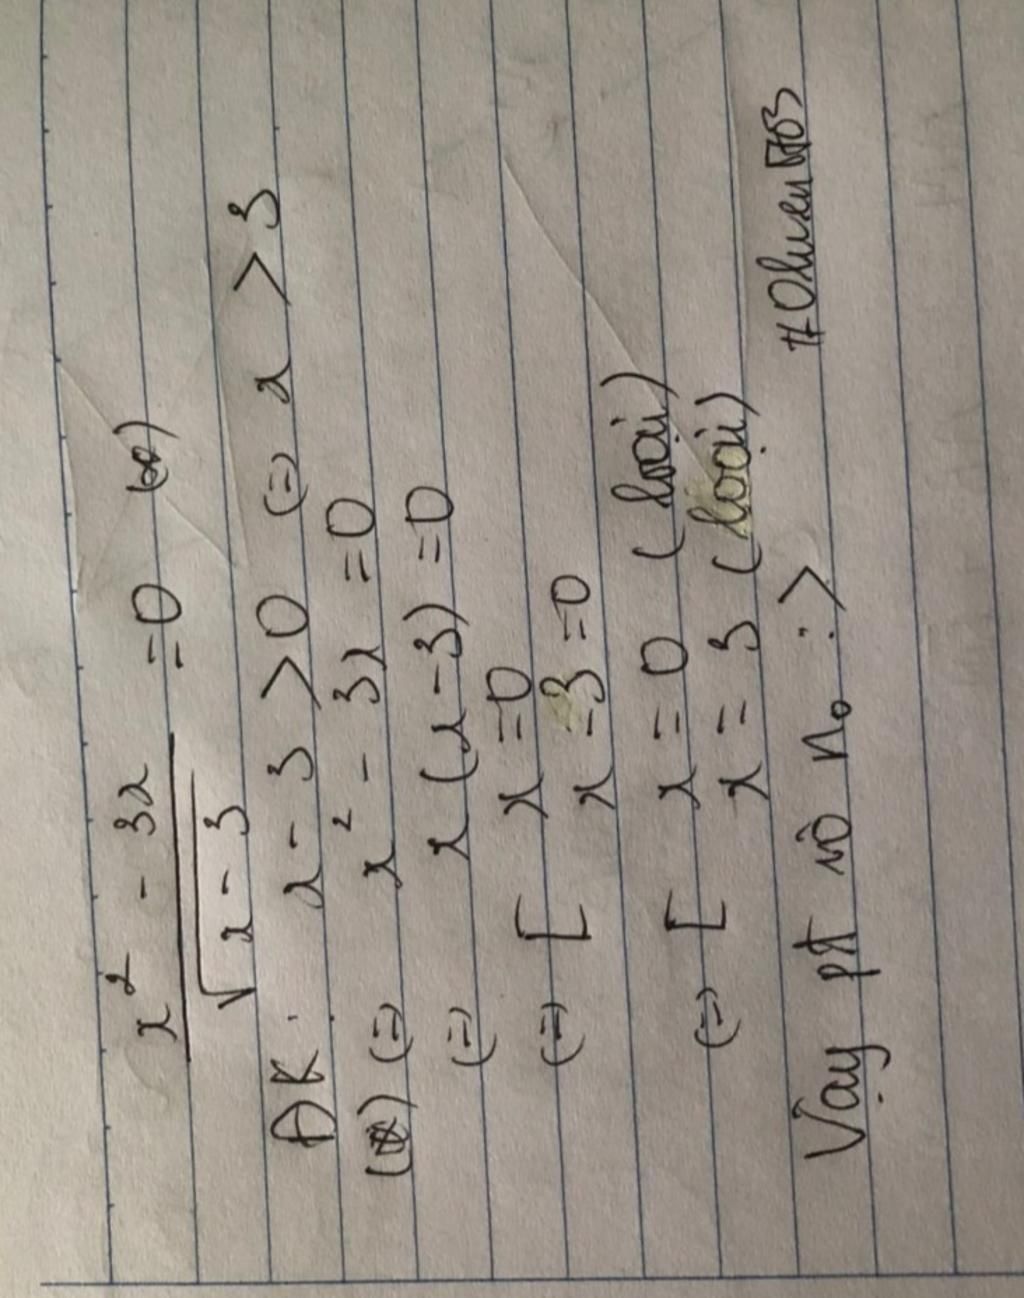 x² - 3x / √x - 3 = 0 (*)
ĐK: x - 3 > 0 (=) x > 3
(*) (=) x² - 3x = 0
(=) x (x - 3) = 0
(=) [ x = 0
x - 3 = 0
(=) [ x = 0 (loại)
x = 3 (loại)
Vậy pt vô no :>